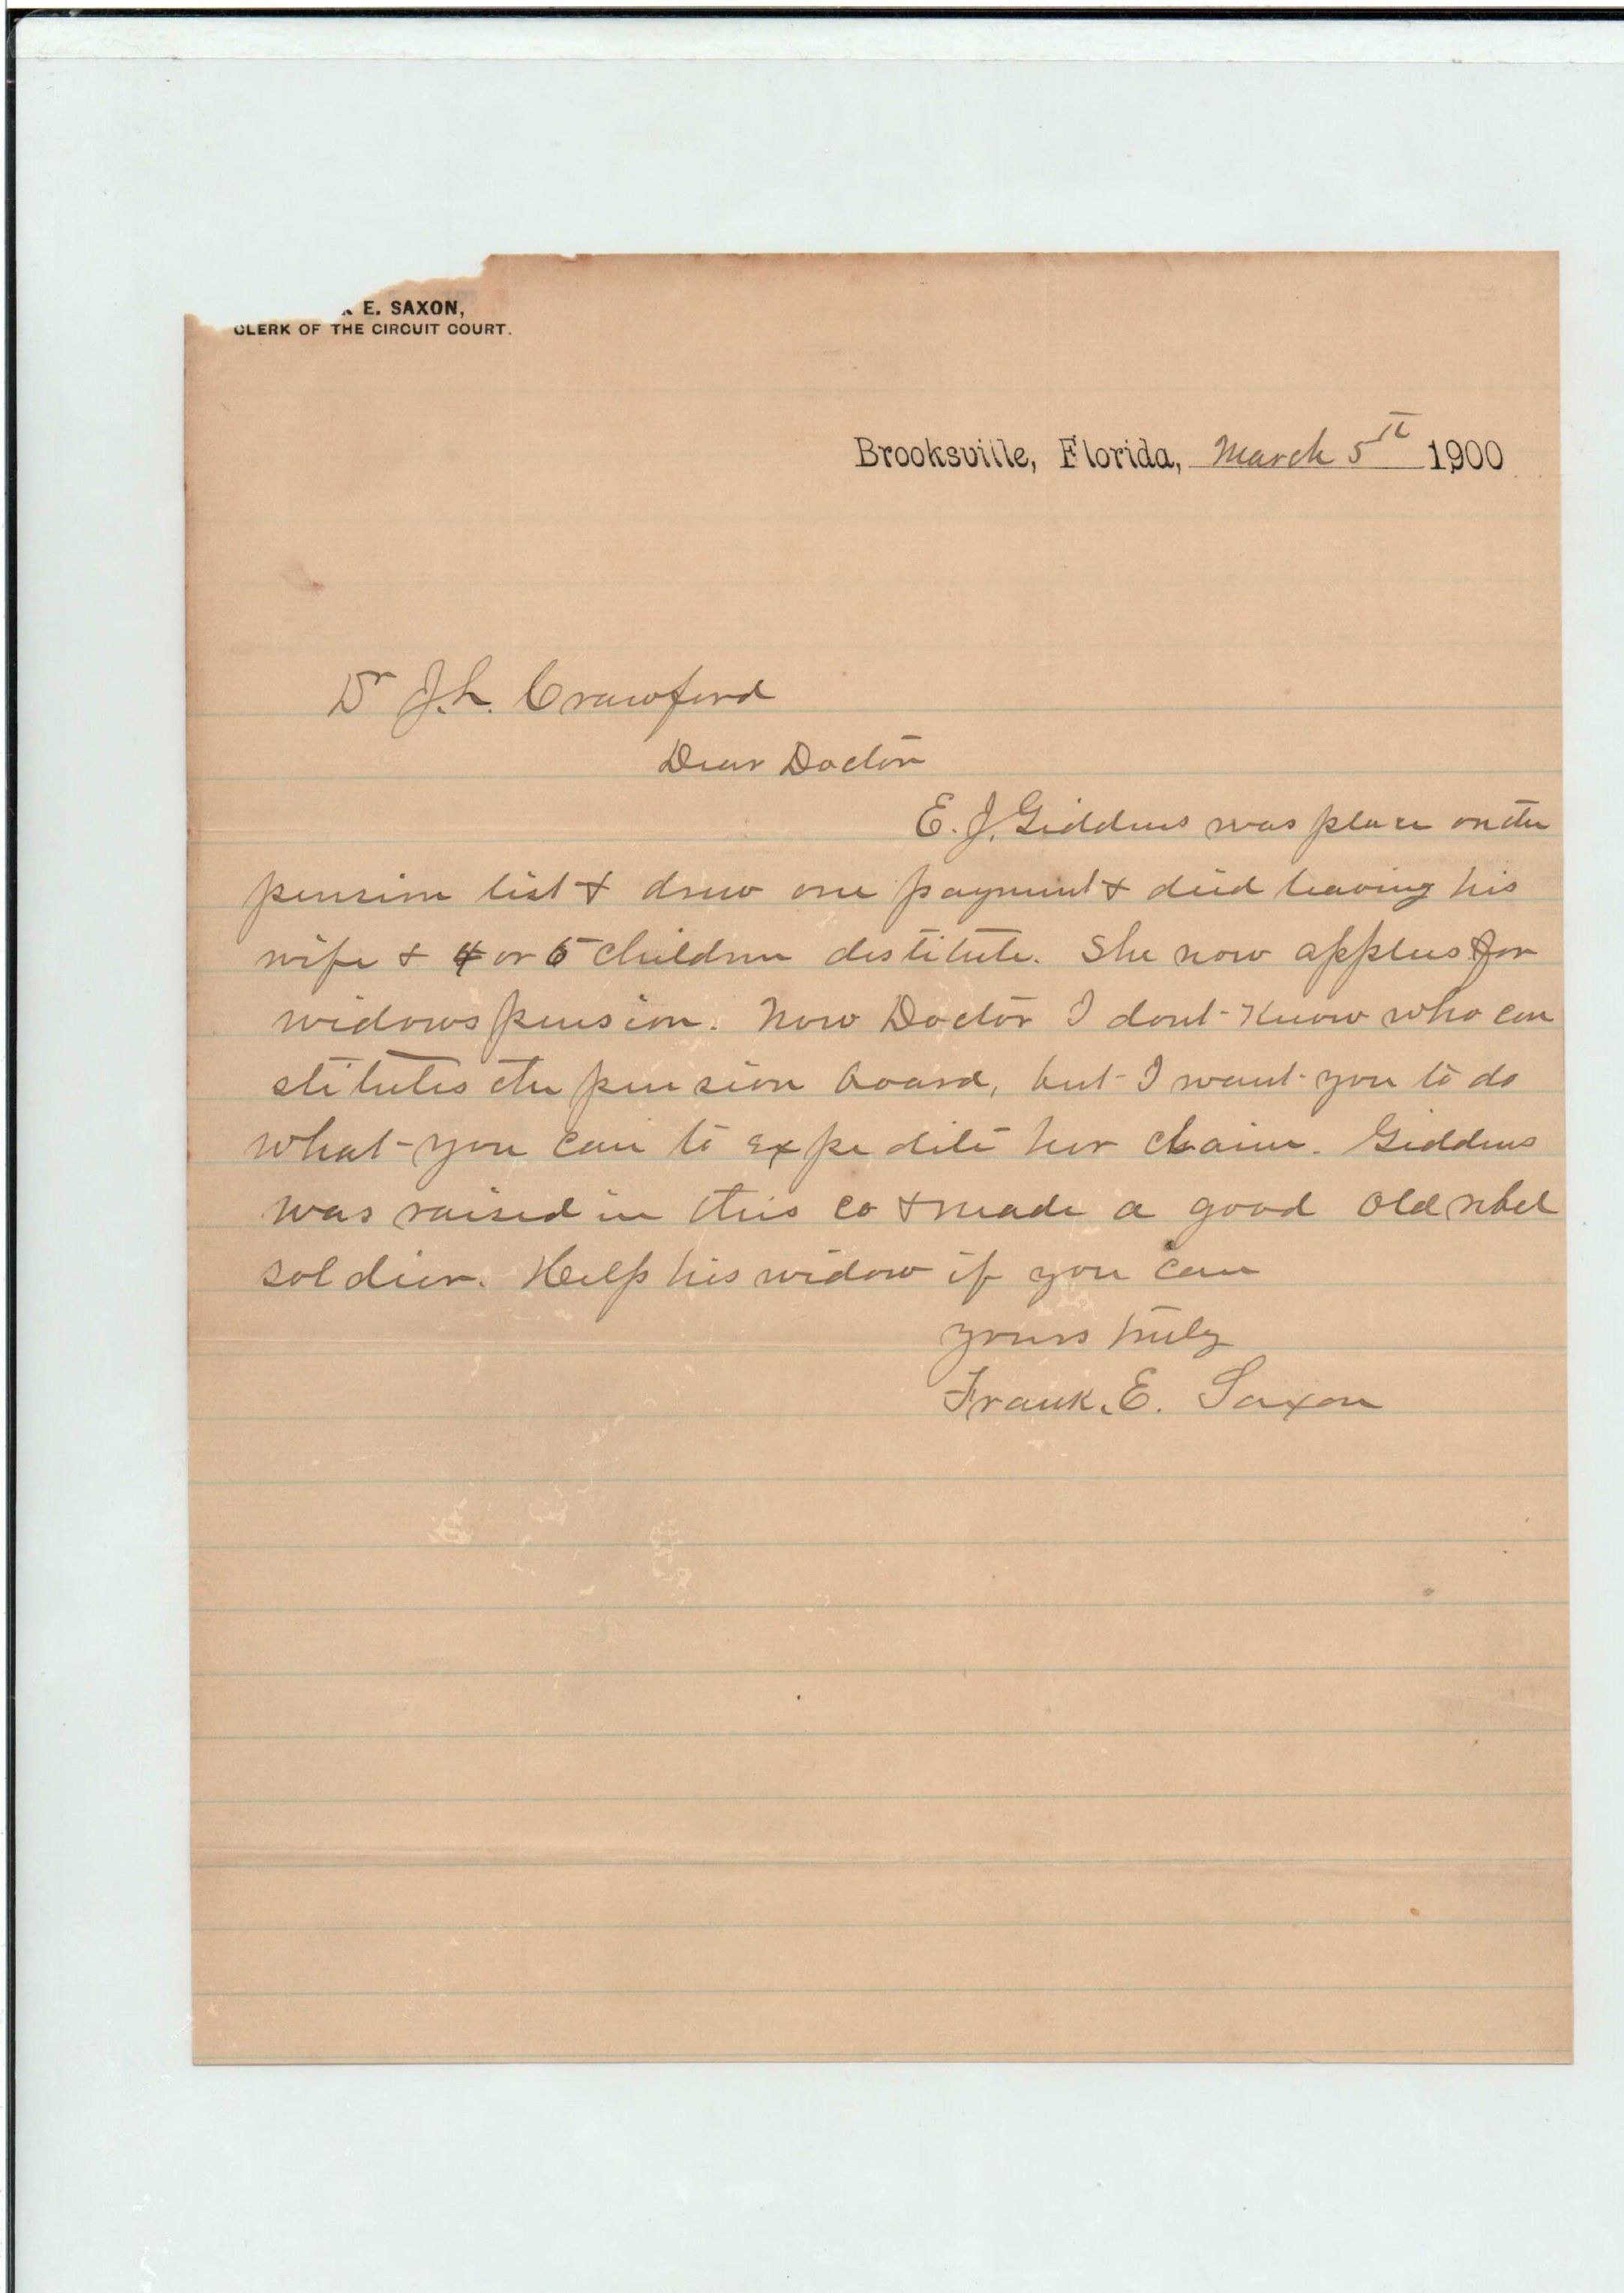 E. SAXON,
CLERK OF THE CIRCUIT COURT.
Brooksville, Florida, March 5th 1900
Dr J. L. Crawford
Dear Doctor
E. J. Giddens was place on the
pension list & drew one payment & died leaving his
wife & 4 or 5 children destitute. She now applies for
widows pension. Now Doctor I dont know who con
stitutes the pension board, but I want you to do
what you can to expedite her claim. Giddens
was raised in this co & made a good old rebel
soldier. Help his widow if you can
yours truly
Frank. E. Saxon